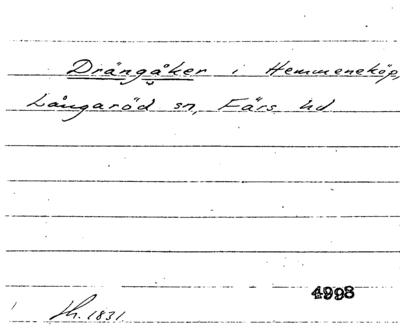 Drängåker i Hemmeneköp,
Långaröd sn, Färs hd
4998
Th. 1831